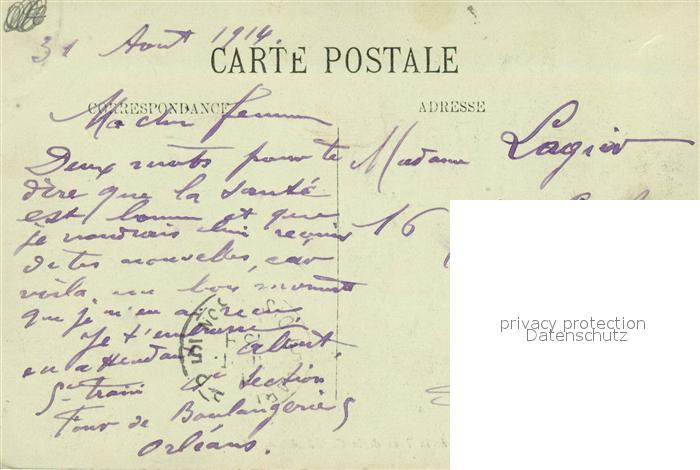 31 Aout 1914.
CARTE POSTALE
CORRESPONDANCE
ADRESSE
Ma cher femme
Deux mots pour te
dire que la santé
est bonne et que
je voudrais bien reçevoir
de tes nouvelles, car
voila un bon moment
que je n'en ai reçu.
Je t'embrasse,
en attendant Albert.
train section
Four de Boulangerie 5
Orléans.
Madame Lagier
16
privacy protection
Datenschutz